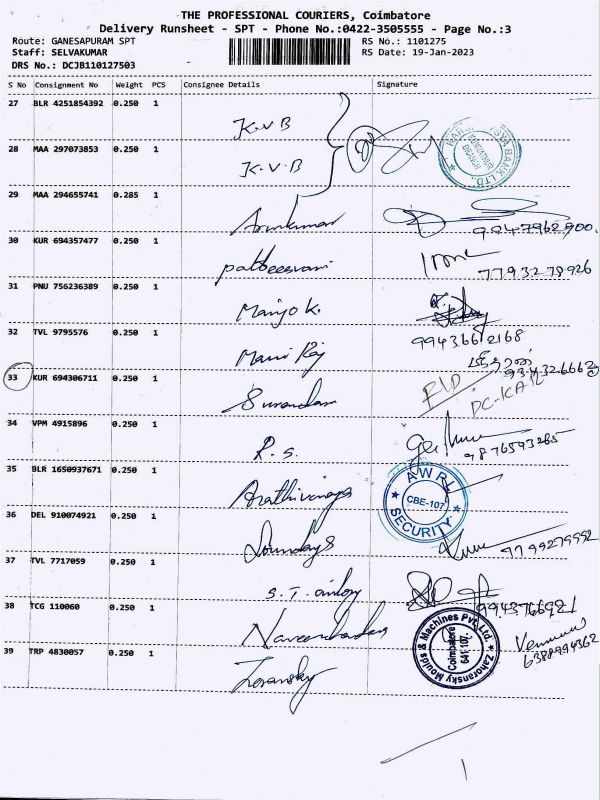 THE PROFESSIONAL COURIERS, Coimbatore
Delivery Runsheet - SPT - Phone No.:0422-3505555 - Page No.:3
Route: GANESAPURAM SPT
Staff: SELVAKUMAR
DRS No.: DCJB110127503
RS No.: 1101275
RS Date: 19-Jan-2023
S No Consignment No Weight PCS Consignee Details Signature
27 BLR 4251854392 0.250 1
K.V.B
28 MAA 297073853 0.250 1
K.V.B
BANK LTD.
29 MAA 294655741 0.285 1
Arunkumar
9947962900.
30 KUR 694357477 0.250 1
77932 78926
31 PNU 756236389 0.250 1
Manjo K.
99436612168
32 TVL 9795576 0.250 1
Mani Raj
33 KUR 694306711 0.250 1
34 VPM 4915896 0.250 1
R. S.
9876593285
35 BLR 1650937671 0.250 1
AWRL
CBE-107
SECURITY
36 DEL 910074921 0.250 1
9799279992
37 TVL 7717059 0.250 1
S. T.
38 TCG 110060 0.250 1
39 TRP 4830057 0.250 1
Zahoransky Moulds & Machines Pvt. Ltd.
Coimbatore
641 107.
6388994362